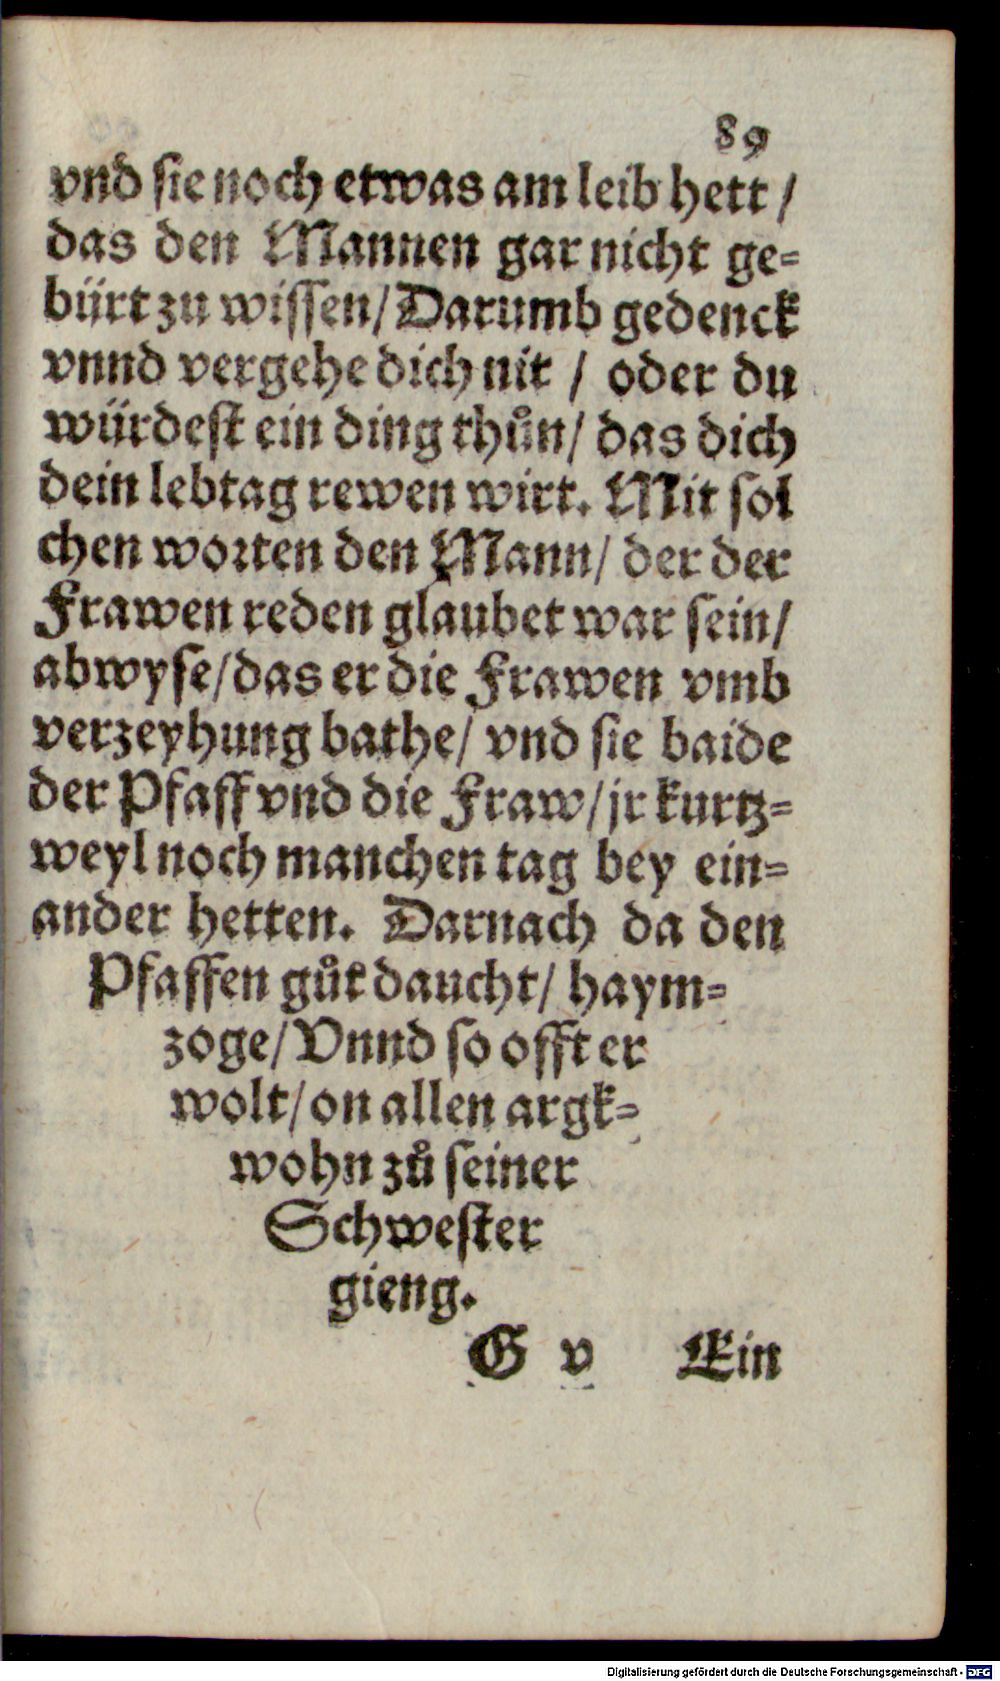 89
vnd sie noch etwas am leib hett /
das den Mannen gar nicht ge⸗
bürt zu wissen / Darumb gedenck
vnnd vergehe dich nit / oder du
würdest ein ding thůn / das dich
dein lebtag rewen wirt. Mit sol
chen worten den Mann / der der
Frawen reden glaubet war sein /
abwyse / das er die Frawen vmb
verzeyhung bathe / vnd sie baide
der Pfaff vnd die Fraw / jr kurtz⸗
weyl noch manchen tag bey ein⸗
ander hetten. Darnach da den
Pfaffen gůt daucht / haym⸗
zoge / Vnnd so offt er
wolt / on allen argk⸗
wohn zů seiner
Schwester
gieng.
G v Ein
Digitalisierung gefördert durch die Deutsche Forschungsgemeinschaft - DFG